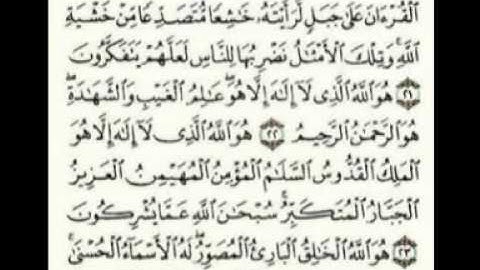 ٱلْقُرْءَانَ عَلَىٰ جَبَلٍ لَّرَأَيْتَهُۥ خَٰشِعًا مُّتَصَدِّعًا مِّنْ خَشْيَةِ
ٱللَّهِ ۚ وَتِلْكَ ٱلْأَمْثَٰلُ نَضْرِبُهَا لِلنَّاسِ لَعَلَّهُمْ يَتَفَكَّرُونَ
٢١ هُوَ ٱللَّهُ ٱلَّذِى لَآ إِلَٰهَ إِلَّا هُوَ ۖ عَٰلِمُ ٱلْغَيْبِ وَٱلشَّهَٰدَةِ ۖ
هُوَ ٱلرَّحْمَٰنُ ٱلرَّحِيمُ ٢٢ هُوَ ٱللَّهُ ٱلَّذِى لَآ إِلَٰهَ إِلَّا هُوَ
ٱلْمَلِكُ ٱلْقُدُّوسُ ٱلسَّلَٰمُ ٱلْمُؤْمِنُ ٱلْمُهَيْمِنُ ٱلْعَزِيزُ
ٱلْجَبَّارُ ٱلْمُتَكَبِّرُ ۚ سُبْحَٰنَ ٱللَّهِ عَمَّا يُشْرِكُونَ
٢٣ هُوَ ٱللَّهُ ٱلْخَٰلِقُ ٱلْبَارِئُ ٱلْمُصَوِّرُ ۖ لَهُ ٱلْأَسْمَآءُ ٱلْحُسْنَىٰ ۚ